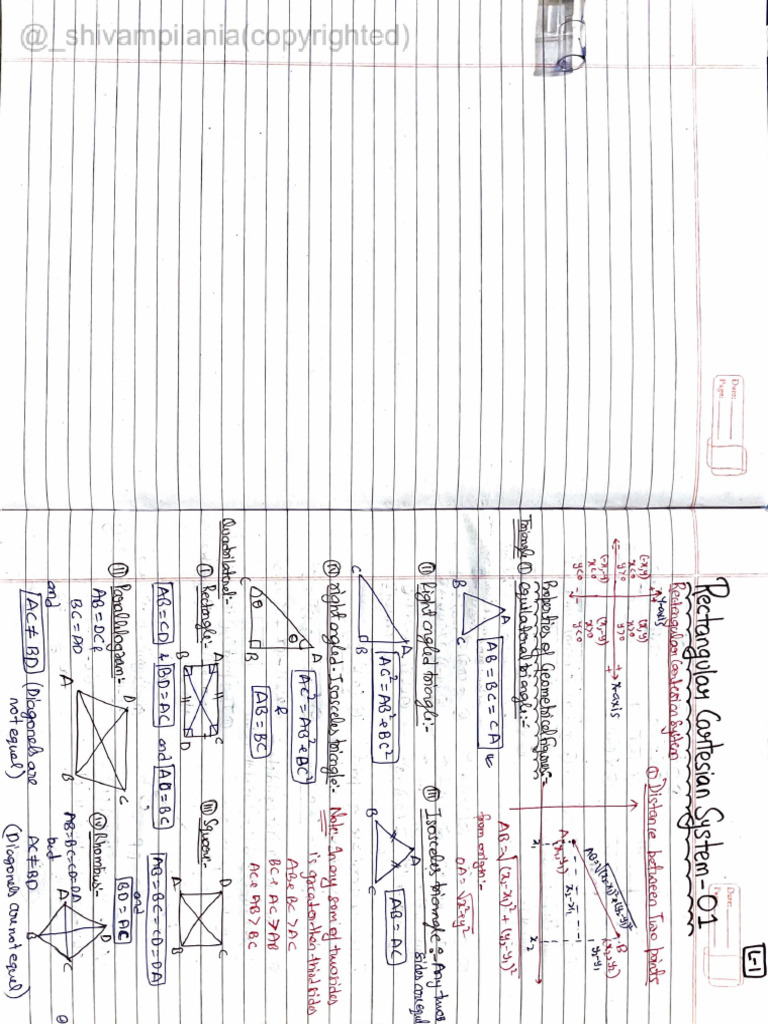 @_shivampilania(copyrighted)
Date:
Page:
Date:
Page:
L-1
Rectangular Cartesian System - 01
Rectangular Cartesian System
Y-axis
X-axis
(-x,y)
x<0
y>0
(x,y)
x>0
y>0
(-x,-y)
x<0
y<0
(x,-y)
x>0
y<0
① Distance between Two points
AB=√(x₂-x₁)²+(y₂-y₁)²
A
(x₁,y₁)
B
(x₂,y₂)
x₂-x₁
y₂-y₁
x₁
x₂
AB=√(x₂-x₁)²+(y₂-y₁)²
from origin:-
OA=√x²+y²
Properties of Geometrical figures:-
Triangle ① equilateral triangle:-
A
B
C
AB=BC=CA
⑪ Right angled triangle:-
A
B
C
AC²=AB²+BC²
⑪ Isosceles triangle:- Any two
sides are equal
A
B
C
AB=AC
⑩ right angled-Isosceles triangle:-
A
B
C
θ
θ
AC²=AB²+BC²
&
AB=BC
Note:- In any sum of two sides
is greater then third sides
AB+BC>AC
BC+AC>AB
AC+AB>BC
Quadrilateral:-
① Rectangle:-
A
B
C
D
AB=CD & BD=AC and AD=BC
⑪ Square:-
A
B
C
D
AB=BC=CD=DA
and
BD=AC
⑪ Parallelogram:-
AB=DC &
BC=AD
A
B
C
D
and
AC≠BD (Diagonals are
not equal)
⑩ Rhombus:-
AB=BC=CD=DA
but
AC≠BD
A
B
C
D
(Diagonals are not equal)